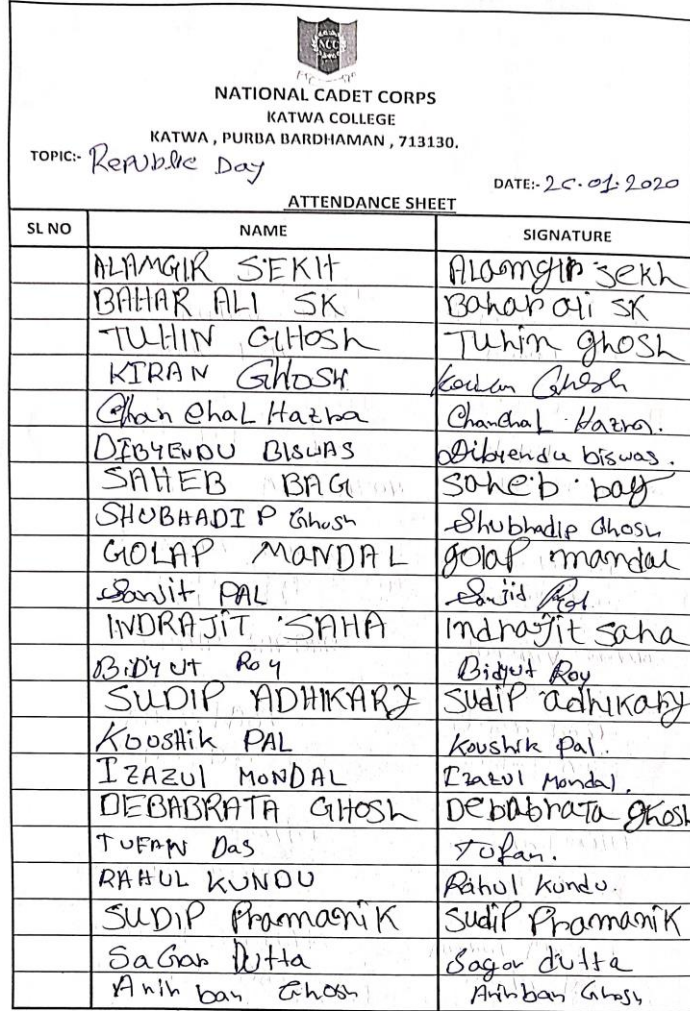 NCC
NATIONAL CADET CORPS
KATWA COLLEGE
KATWA , PURBA BARDHAMAN , 713130.
TOPIC:- Republic Day
DATE:- 26.01.2020
ATTENDANCE SHEET
SL NO NAME SIGNATURE
ALAMGIR SEKH Alamgir Sekh
BAHAR ALI SK Bahar ali SK
TUHIN GHOSH Tuhin ghosh
KIRAN GHOSH Ghosh
Chanchal Hazra Chanchal Hazra.
DIBYENDU BISWAS Dibyendu biswas.
SAHEB BAG Saheb bag
SHUBHADIP Ghosh Shubhadip Ghosh
GOLAP MANDAL golap mandal
Sanjit PAL
INDRAJIT SAHA Indrajit saha
BiDYUT Roy Bidyut Roy
SUDIP ADHIKARY Sudip adhikary
KOUSHIK PAL Koushik Pal.
IZAZUL MONDAL Izazul Mondal.
DEBABRATA GHOSH Debabrata ghosh
TUFAN Das Tufan.
RAHUL KUNDU Rahul Kundu.
SUDIP PRamaniK Sudip PRamanik
SaGar Dutta Sagar dutta
Anirban Ghosh Anirban Ghosh